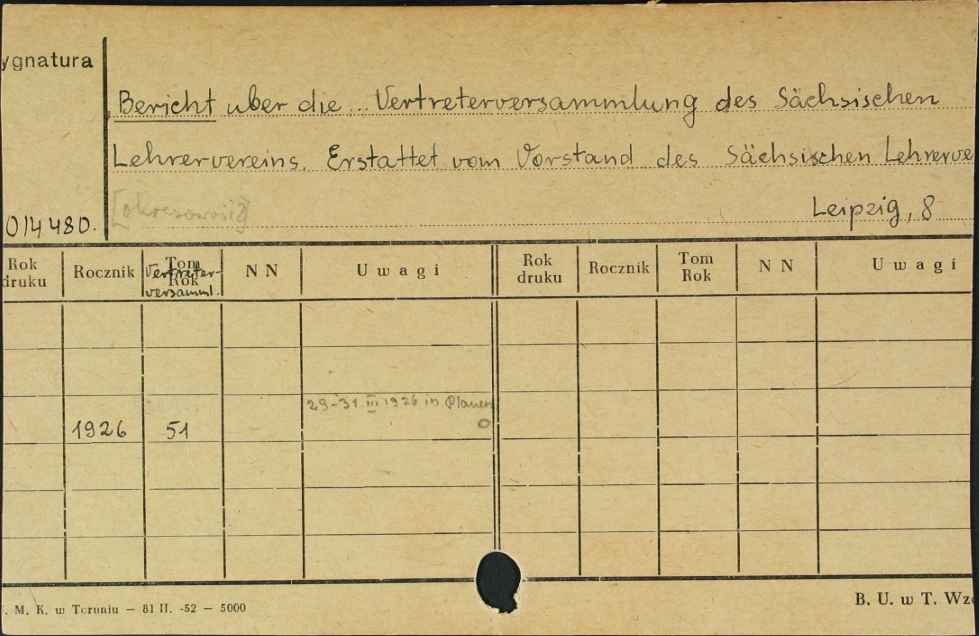 ygnatura
Bericht uber die .. Vertreterversammlung des Sächsischen
Lehrervereins. Erstattet vom Vorstand des Sächsischen Lehrerve
0/4 480.
Leipzig, 8
Rok druku Rocznik Tom Rok Vertreter-versamml. N N Uwagi Rok druku Rocznik Tom Rok N N Uwagi
29-31 III 1926 in Plauen
1926 51
. M. K. w Toruniu — 81 II. -52 — 5000
B. U. w T. Wz